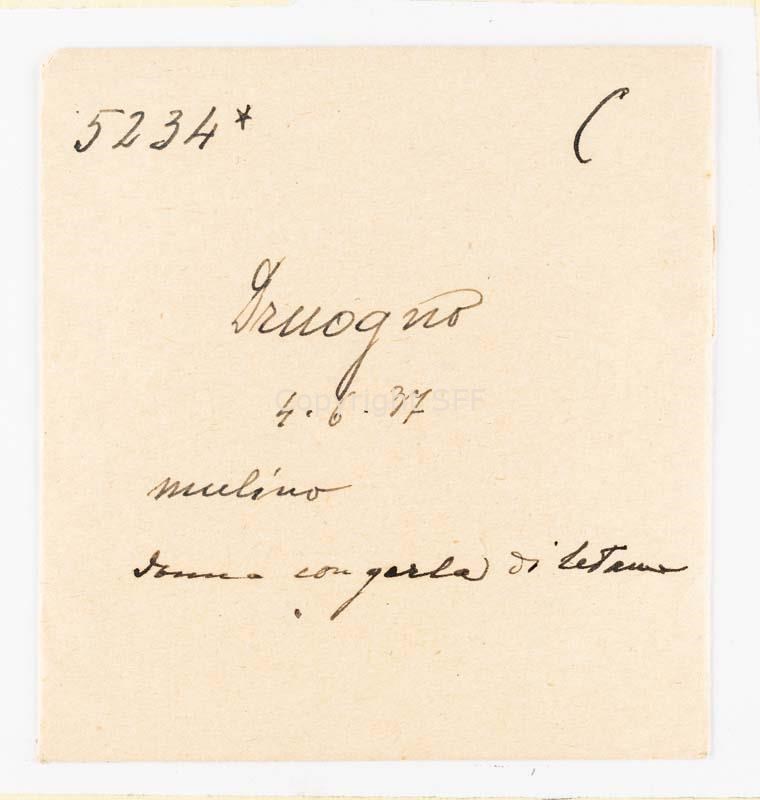 5234* C
Druogno
Copyright SFF
4.6.37
mulino
donna con gerla di letame